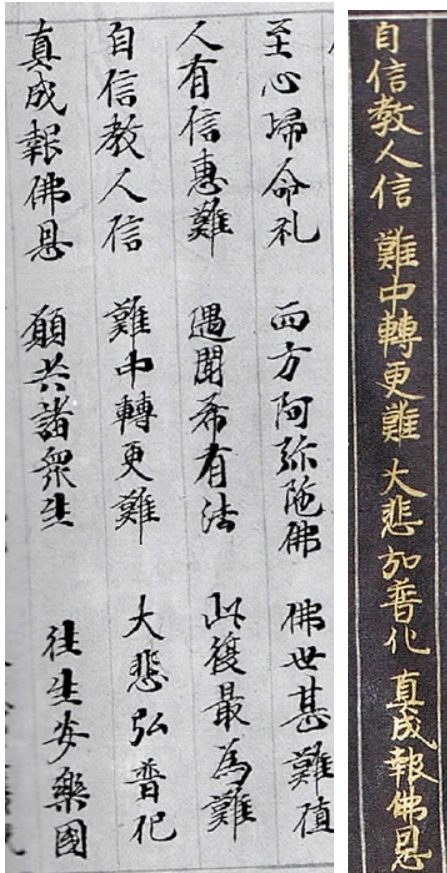 至心歸命礼 西方阿弥陀佛 佛世甚難值
人有信惠難 遇聞希有法 此復最為難
自信教人信 難中轉更難 大悲弘普化
真成報佛恩 願共諸衆生 往生安樂國
自信教人信 難中轉更難 大悲加普化 真成報佛恩